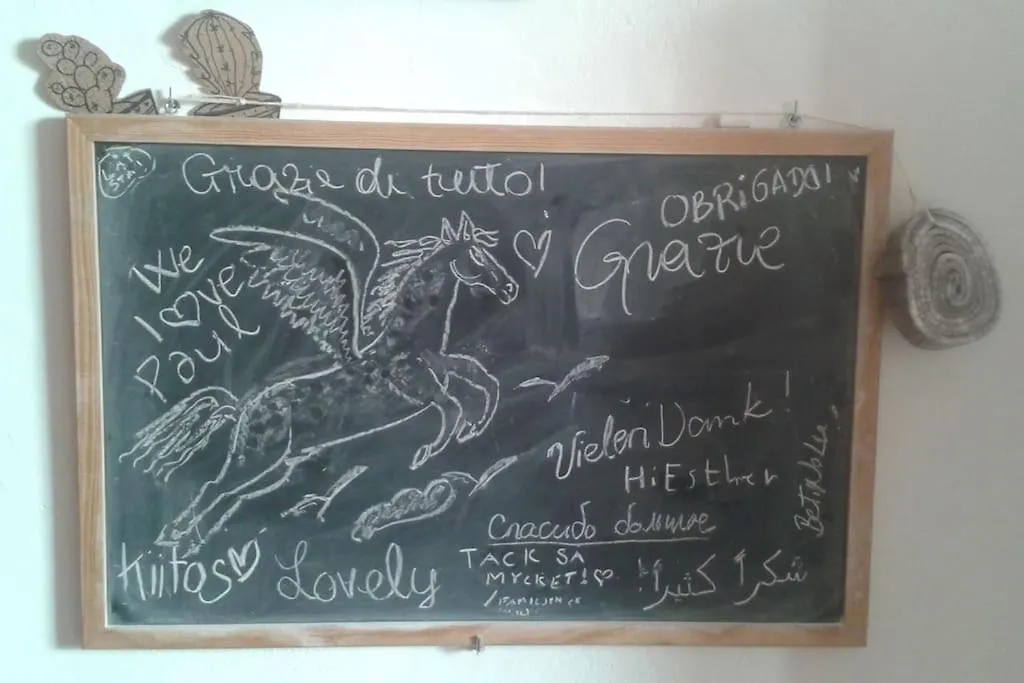 Grazie di tutto!
OBRIGADO!
Grazie
We
love
Paul
Vielen Dank!
Hi Esther
Спасибо большое
Kiitos
Lovely
TACK SA
MYCKET!
شكراً كثيراً!